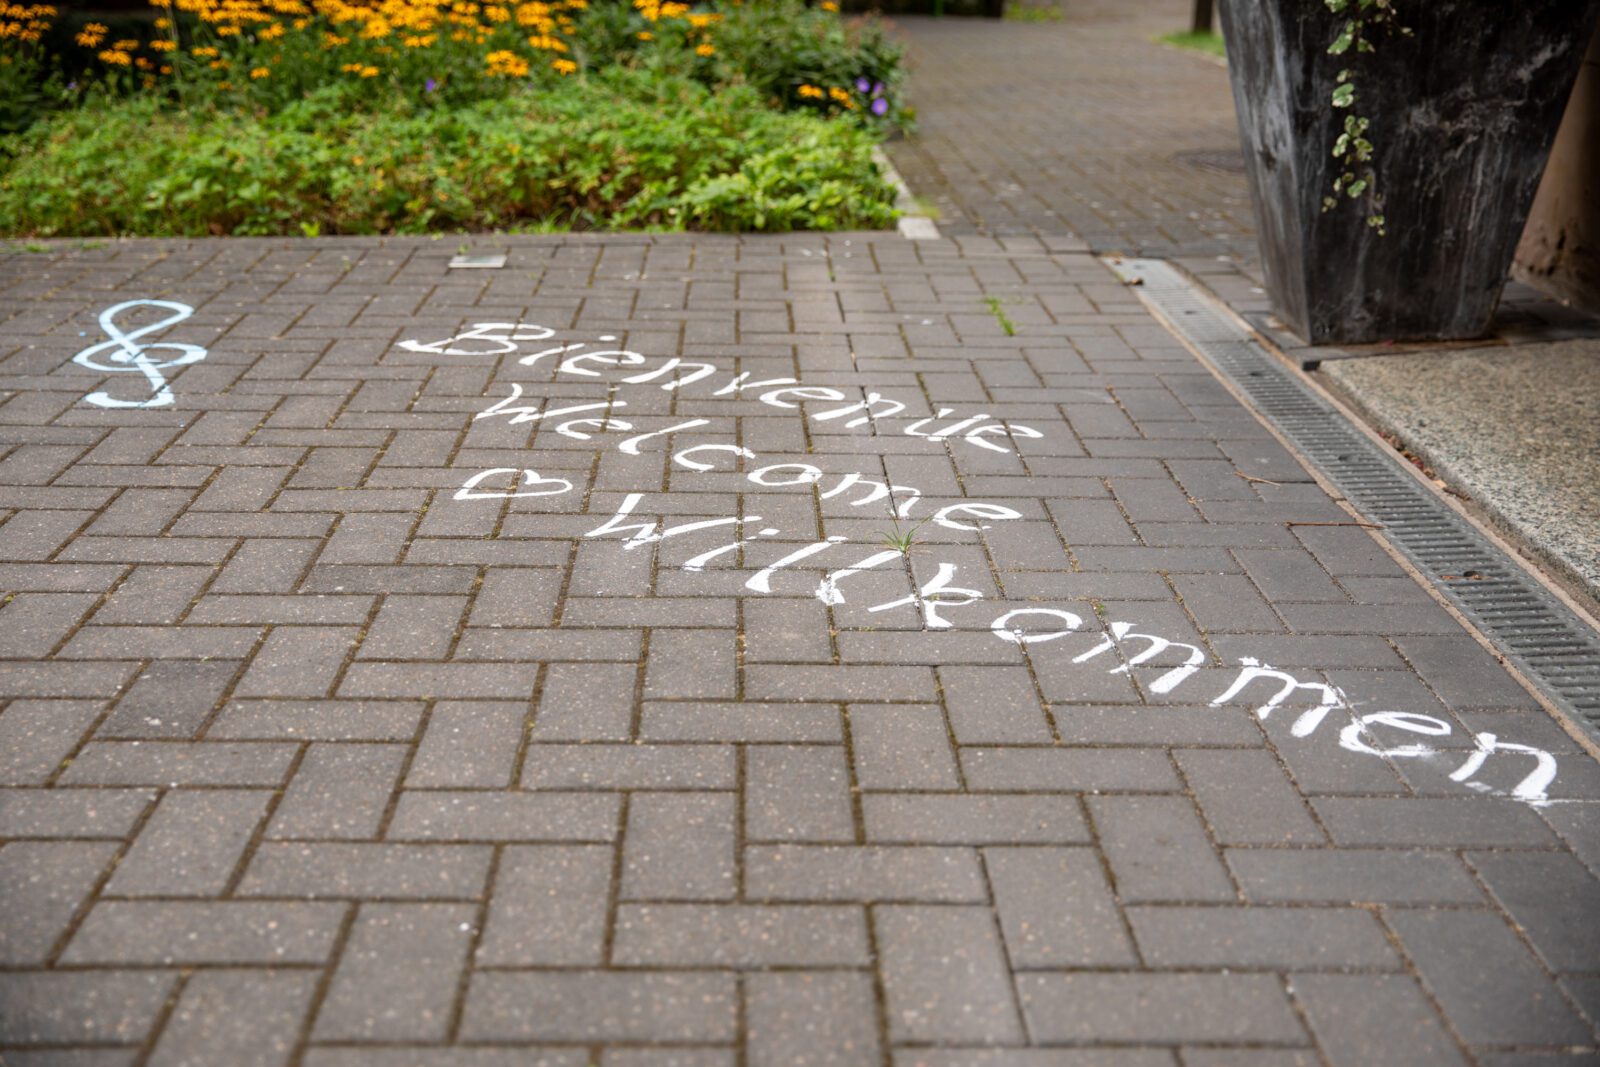 Bienvenüe
Welcome
Willkommen